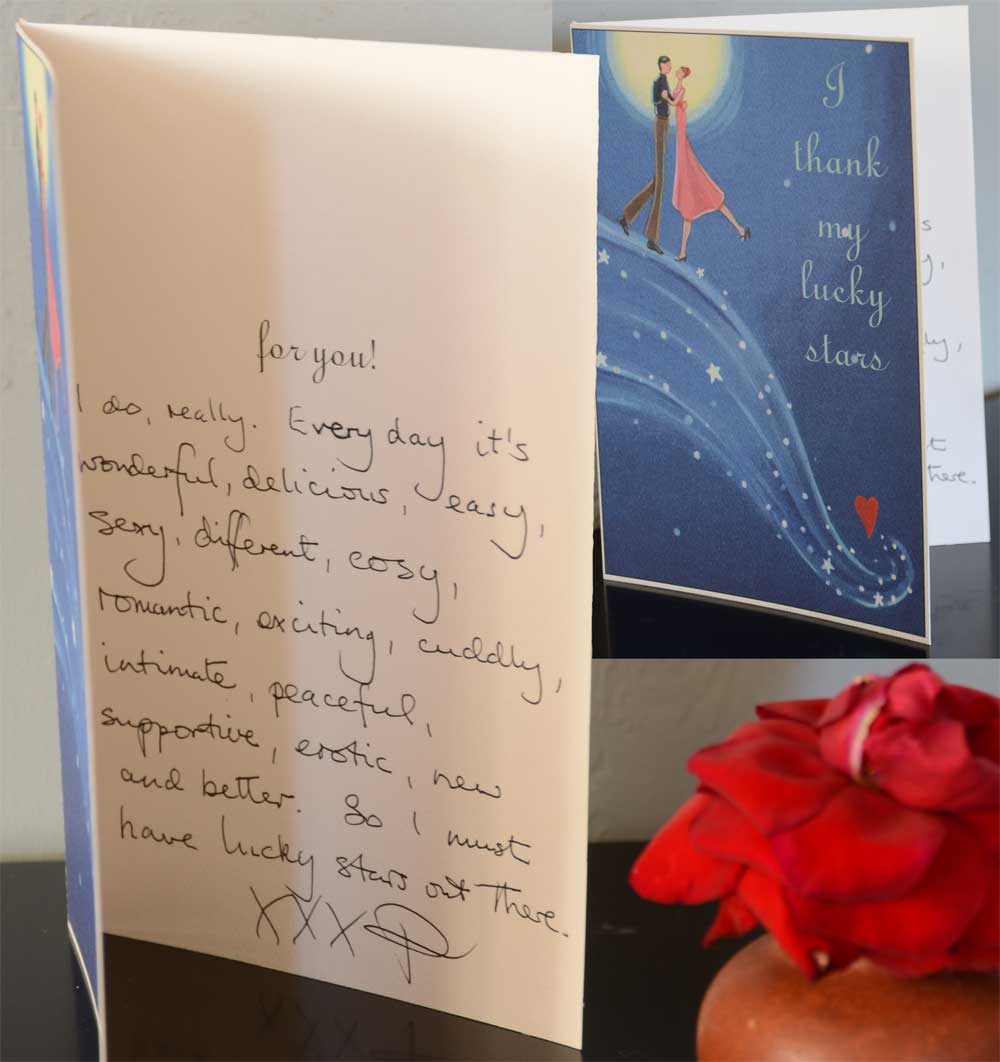 for you!
I do, really. Every day it's
wonderful, delicious, easy,
sexy, different, cosy,
romantic, exciting, cuddly,
intimate, peaceful,
supportive, erotic, new
and better. So I must
have lucky stars out there.
XXX P
I
thank
my
lucky
stars
s
y,
ly,
t
there.